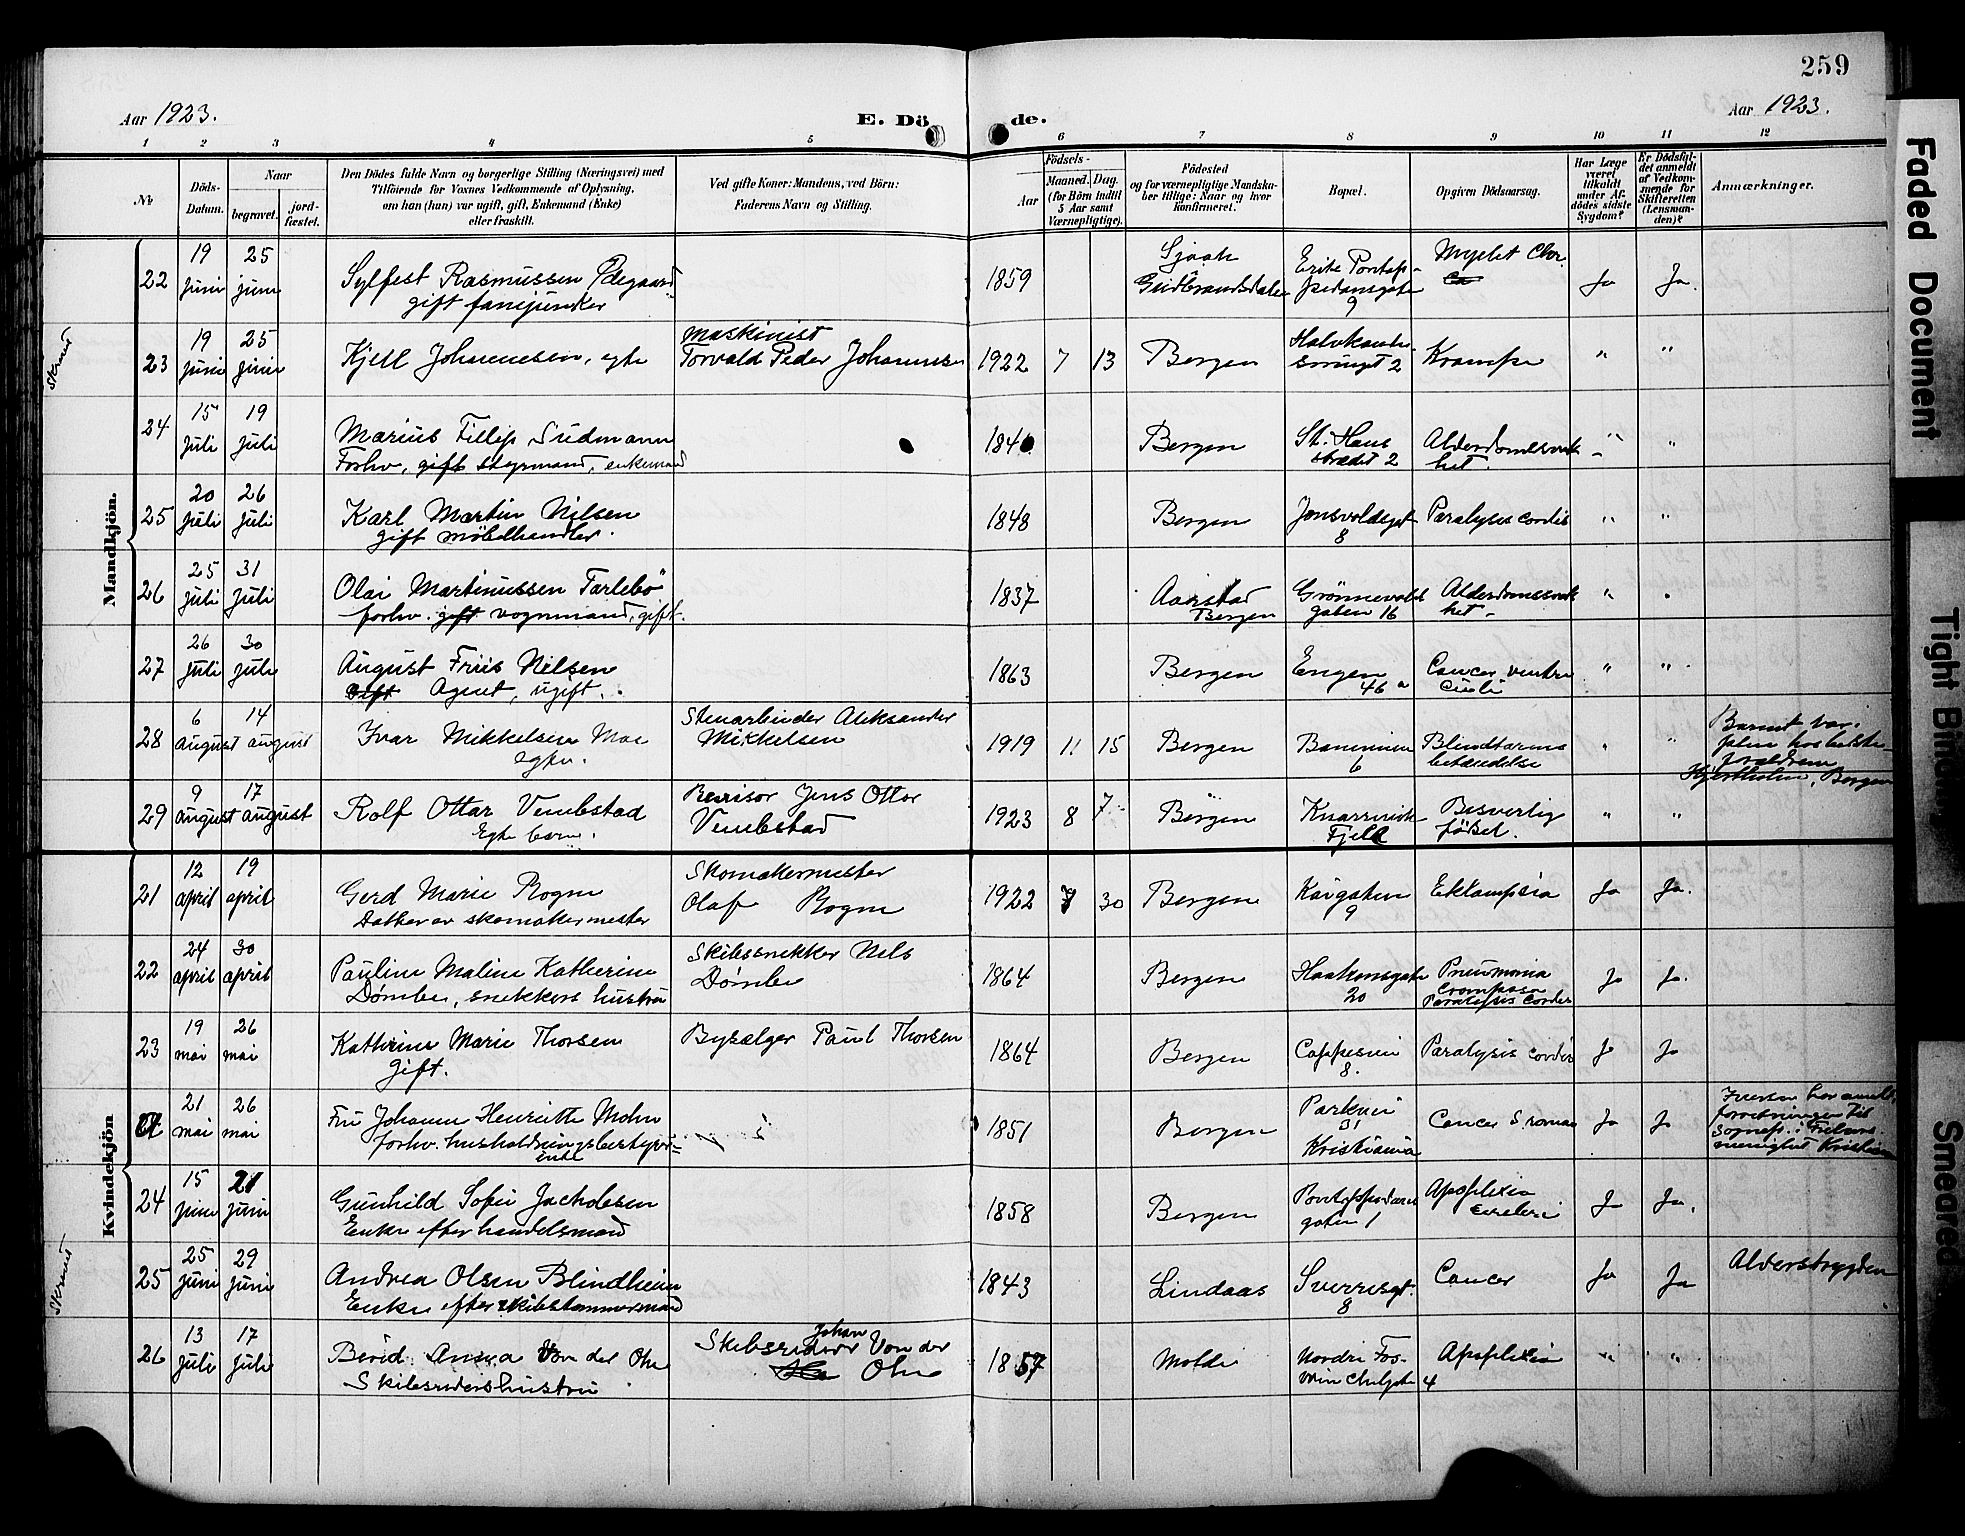 259
Aar 1923.
E. Dö de.
Aar 1923.
1 2 3 4 5 6 7 8 9 10 11 12
No
Döds-Datum.
Naar
begravet. jord-fæstet.
Den Dödes fulde Navn og borgerlige Stilling (Næringsvei) med
Tilföiende for Voxnes Vedkommende af Oplysning,
om han (hun) var ugift, gift, Enkemand (Enke)
eller fraskilt.
Ved gifte Koner: Mandens, ved Börn:
Faderens Navn og Stilling.
Födsels-
Aar Maaned. Dag.
(for Börn indtil
5 Aar samt
Værnepligtige).
Födested
og for værnepligtige Mandska-
ber tillige: Naar og hvor
konfirmeret.
Bopæl.
Opgiven Dödsaarsag.
Har Læge
været
tilkaldt
under Af-
dödes sidste
Sygdom?
Er Dödsfal-
det anmeldt
af Vedkom-
mende for
Skifteretten
(Lensman-
den)?
Anmærkninger.
Mandkjön.
22 19 juni 25 juni Sylfest Rasmussen Ødegaard
gift fanejunker
1859 Gudbrandsdalen Erik Pontop-
pidansgate 9 Ja Ja.
23 19 juni 25 juni Kjell Johannesen, egte
Maskinist
Torvald Peder Johannesen
1922 7 13 Bergen 2 Krampe " "
24 15 juli 19 juli Marius Fillip Sudmann
Forhv. gift styrmand, enkemand
Bergen St. Hans
strædet 2 Alderdomssvak
het. " "
25 20 juli 26 juli Karl Martin Nilsen
gift møbelhandler.
1848 Bergen Jonsvoldsgt
8 Paralysis cordis " "
26 25 juli 31 juli Olai Martinussen Tarlebö
forhv. gift vognmand, gift.
1837 Aarstad
Bergen Grönnevolds
gaten 16 Alderdomssvak
het - "
27 26 juli 30 juli August Friis Nilsen
Gift Agent, ugift.
1863 Bergen Engen
46 a Cancer ventri
culi " "
28 6 august 14 august Ivar Mikkelsen Moe
egte.
Stenarbeider Aleksander
Mikkelsen
1919 11 15 Bergen 6 Blindtarms
betændelse " "
Barnet var
Hjertholm, Bergen
29 9 august 17 august Rolf Ottar Vembstad
Egte barn.
Revisor Jens Ottar
Vembstad
1923 8 7 Bergen Knarrevik
Fjell Besverlig
födsel. " "
Kvindekjön
21 12 april 19 april Gerd Marie Rogne
Datter av skomakermester
Skomakermester
Olaf Rogne
1922 30 Bergen Kaigaten
9 Eklampsia Ja Ja.
22 24 april 30 april Pauline Maline Katherine
Dømbe, snekkers hustru
Skibssnekker Nels
Dømbe
1864 Bergen Haakonsgate
20 Pneumonia
Crouposa
Paralysis Cordis Ja Ja.
23 19 mai 26 mai Kathrine Marie Thorsen
Gift.
Bysælger Paul Thorsen
1864 Bergen 8. Paralysis cordis Ja Ja
21 mai 26 mai Fru Johanne Henriette Mohn
forhv. husholdningsbestyrer=
enke
1851 Bergen Parkvei
31
Kristiania Cancer Ja Ja
24 15 juni 21 juni Gunhild Sofie Jacobsen
Enke efter handelsmand
1858 Bergen Pontoppidans
gaten 1 Apoplexia
cerebri Ja Ja.
25 25 juni 29 juni Andrea Olsen Blindheim
Enke efter skibstømmermand
1843 Lindaas Sverresgt.
8 Cancer Ja Ja Alderstrygden
26 13 juli 17 juli Berid Anna Von der Ohe
Skibsrederhustru
Skibsreder Johan Von der
Ohe
1857 Molde Nordre Fos-
4 Apoplexia " "
Skrevet
Skrevet
Faded Document
Tight Binding
Smeared